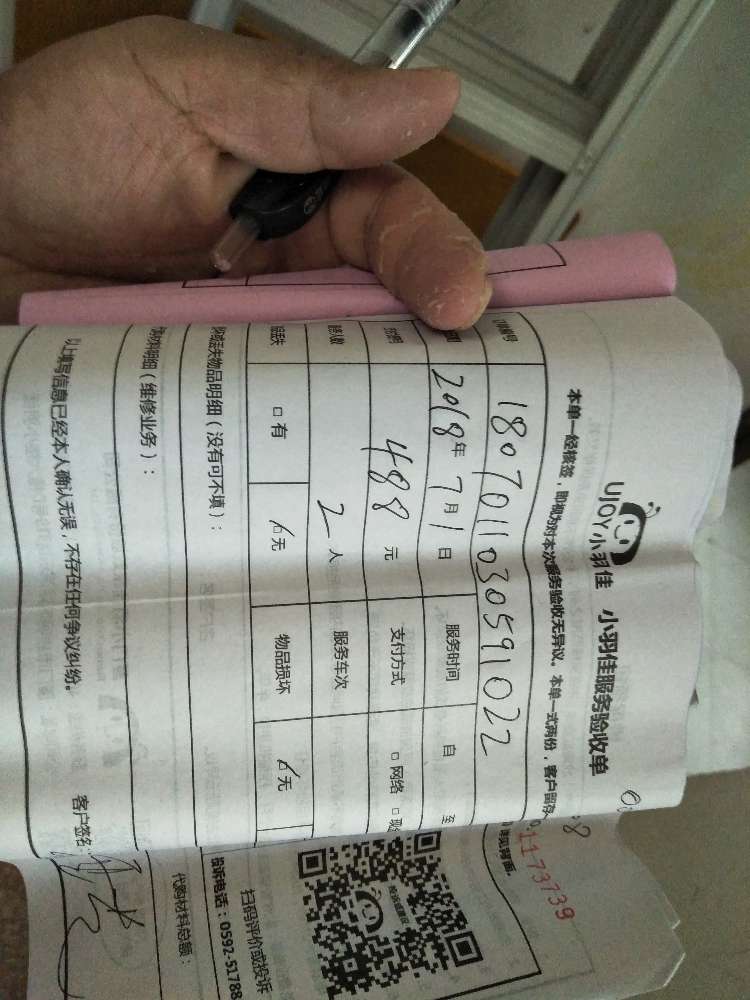 UJOY小羽佳 小羽佳服务验收单
1173739
本单一经核签，即视为对本次服务验收无异议。本单一式两份，客户留存
详见背面。
订单编号 180701103059 1022
2018年7月1日 服务时间 自 至
488元 支付方式 □网络 □现
2人 服务车次
□有 □无 物品损坏 □无
失物品明细（没有可不填）：
材料明细（维修业务）：
以上填写信息已经本人确认无误，不存在任何争议纠纷。
客户签名：
扫码评价或投诉
投诉电话：0592-51788
代购材料总额：